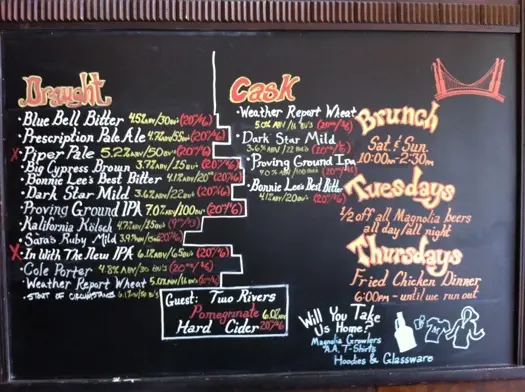 Draught
Blue Bell Bitter 4.5% ABV/30 BU's (20oz/$6)
Prescription Pale Ale 4.7% ABV/55 BU's (20oz/$6)
x Piper Pale 5.2% ABV/50 BU's (20oz/$6)
Big Cypress Brown 3.7% ABV/25 BU's (20oz/$6)
Bonnie Lee's Best Bitter 4.1% ABV/20 BU's (20oz/$6)
Dark Star Mild 3.6% ABV/22 BU's (20oz/$6)
Proving Ground IPA 7.0% ABV/100 BU's (20oz/$6)
Kalifornia Kölsch 4.7% ABV/25 BU's
Sara's Ruby Mild 3.9% ABV (20oz/$6)
x In With The New IPA 6.2% ABV/65 BU's (20oz/$6)
Cole Porter 4.8% ABV/30 BU's (20oz/$6)
Weather Report Wheat (20oz/$6)
Stout of Circumstance
Cask
Weather Report Wheat
5.0% ABV (20oz/$6)
Dark Star Mild
3.6% ABV (20oz/$6)
Proving Ground IPA
7.0% ABV/100 BU's (20oz/$6)
Bonnie Lee's Best Bitter
4.1% ABV/20 BU's (20oz/$6)
Guest: Two Rivers
Pomegranate 6.0% ABV
Hard Cider 20oz/$6
Brunch
Sat. & Sun.
10:00am-2:30pm
Tuesdays
1/2 off all Magnolia beers
all day/all night
Thursdays
Fried Chicken Dinner
6:00pm - until we run out
Will You Take
Us Home?
Magnolia Growlers
A.A. T-Shirts
Hoodies & Glassware